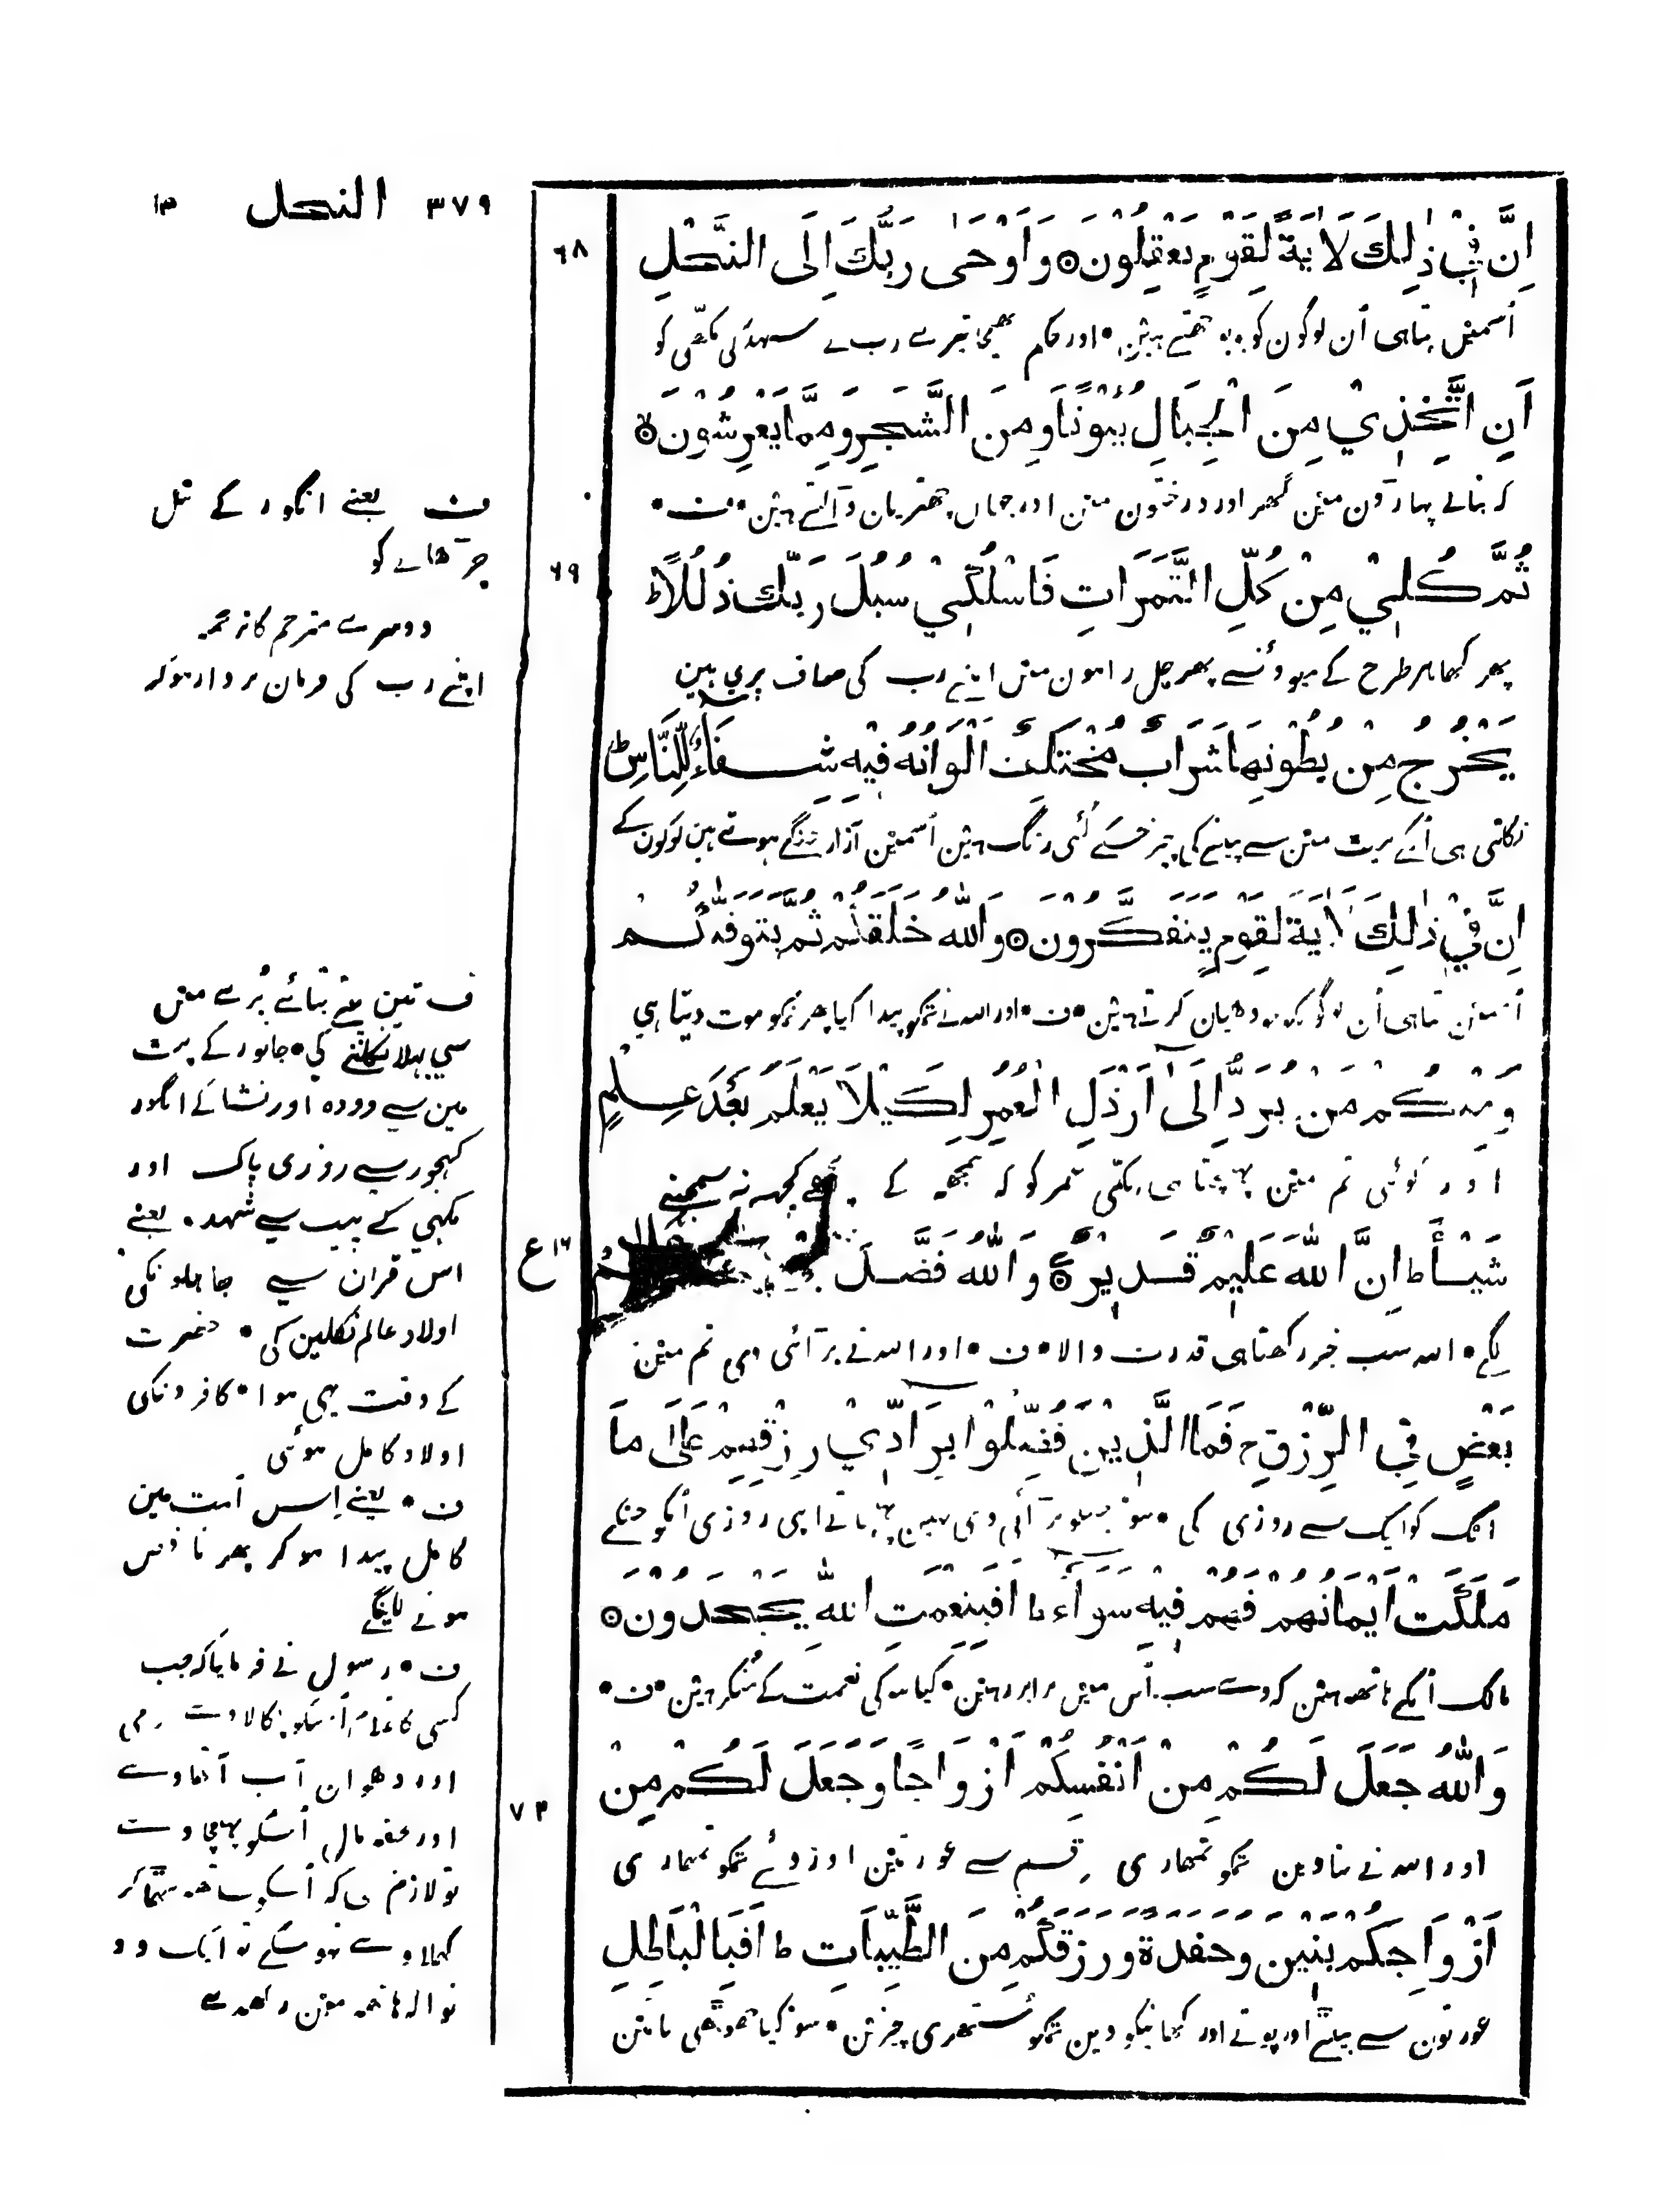 ٣٧٩ النحل ١٣
اِنَّ فِيْ ذٰلِكَ لَاٰيَةً لِقَوْمٍ يَعْقِلُوْنَ ۞ وَاَوْحٰى رَبُّكَ اِلَى النَّحْلِ
٦٨
اُسمین پتاہی اُن لوگون کو جو بوجھتے ہیں • اور حکم بھیجا تیرے رب نے شہد کی مکھّی کو
اَنِ اتَّخِذِيْ مِنَ الْجِبَالِ بُيُوْتًا وَمِنَ الشَّجَرِ وَمِمَّا يَعْرِشُوْنَ ۞
کہ بنالے پہاڑون مین گھر اور درختون مین اور جہان چھتریان ڈالتے ہین • ف •
ثُمَّ كُلِيْ مِنْ كُلِّ الثَّمَرَاتِ فَاسْلُكِيْ سُبُلَ رَبِّكِ ذُلُلًا ط
٦٩
پھر کھا ہر طرح کے میوونسے پھر چل راہون مین اپنے رب کی صاف پری ہین
يَخْرُجُ مِنْ بُطُوْنِهَا شَرَابٌ مُخْتَلِفٌ اَلْوَانُهُ فِيْهِ شِفَاءٌ لِلنَّاسِ ط
نکلتی ہی اُنکے پیٹ مین سے پینے کی چیز جسکے کئی رنگ ہین اُسمین آزار چنگے ہوتے ہین لوگون کے
اِنَّ فِيْ ذٰلِكَ لَاٰيَةً لِقَوْمٍ يَتَفَكَّرُوْنَ ۞ وَاللّٰهُ خَلَقَكُمْ ثُمَّ يَتَوَفّٰىكُمْ
اُسمین پتاہی اُن لوگونکو جو دھیان کرتے ہین • ف • اور اللہ نے تمکو پیدا کیا پھر تمکو موت دیتا ہی
وَمِنْكُمْ مَنْ يُرَدُّ اِلٰى اَرْذَلِ الْعُمُرِ لِكَيْلَا يَعْلَمَ بَعْدَ عِلْمٍ
اور کوئی تم مین پہنچتا ہی نکمّی عمر کو کہ سمجھہ کے پیچھے کچھہ نہ سمجھنے
شَيْـًٔا ط اِنَّ اللّٰهَ عَلِيْمٌ قَدِيْرٌ ۞ وَاللّٰهُ فَضَّلَ
١٦ ع
لگے • اللہ سب خبر رکھتاہی قدرت والا • ف • اور اللہ نے برآئی دی تم مین
بَعْضٍ فِي الرِّزْقِ ج فَمَا الَّذِيْنَ فُضِّلُوْا بِرَادِّيْ رِزْقِهِمْ عَلٰى مَا
ایک کو ایک سے روزی کی • سو جنکو برآئی دی نہین پہنچاتے اپنی روزی اُنکو جنکے
مَلَكَتْ اَيْمَانُهُمْ فَهُمْ فِيْهِ سَوَاءٌ ط اَفَبِنِعْمَتِ اللّٰهِ يَجْحَدُوْنَ ۞
مالک اُنکے ہاتھہ ہین کہ وے سب اُس مین برابر رہین • کیا اللہ کی نعمت کے منکر ہین • ف •
وَاللّٰهُ جَعَلَ لَكُمْ مِنْ اَنْفُسِكُمْ اَزْوَاجًا وَجَعَلَ لَكُمْ مِنْ
٧٣
اور اللہ نے بنا دین تمکو تمھاری قسم سے عورتین اور دئے تمکو تمھاری
اَزْوَاجِكُمْ بَنِيْنَ وَحَفَدَةً وَرَزَقَكُمْ مِنَ الطَّيِّبَاتِ ط اَفَبِالْبَاطِلِ
عورتون سے بیٹے اور پوتے اور کھانیکو دین تمکو ستھری چیزین • سو کیا جھوٹھی باتین
ف یعنے انگور کے بیل
چرَھانے کو
دوسرے مترجم کا ترجمہ
اپنے رب کی فرمان بردار ہوکر
ف تین پتے بتائے بُرے مین
سی بھلا نکلنے کی • جانور کے پیٹ
مین سے دودہ اور نشا کے انگور
کھجور سے روزی پاک اور
مکھی کے پیٹ سے شہد • یعنے
اس قران سے جاہلونکی
اولاد عالم نکلین کی • حضرت
کے وقت یہی ہوا • کافرونکی
اولاد کامل ہوئی
ف • یعنے اِس اُمت مین
کامل پیدا ہو کر پھر ناقص
ہونے لگینگے
ف • رسول نے فرمایا کہ جب
کسی کا غلام اُسکو پکا لاوے
اور دھوان آپ اُٹھاوے
اور مال اُسکو پہنچاوے
تو لازم کہ اُسکو ساتھہ بٹھا کر
کھلاوے نہو سکے تو ایک دو
نوالہ ہاتھہ مین رکھدے